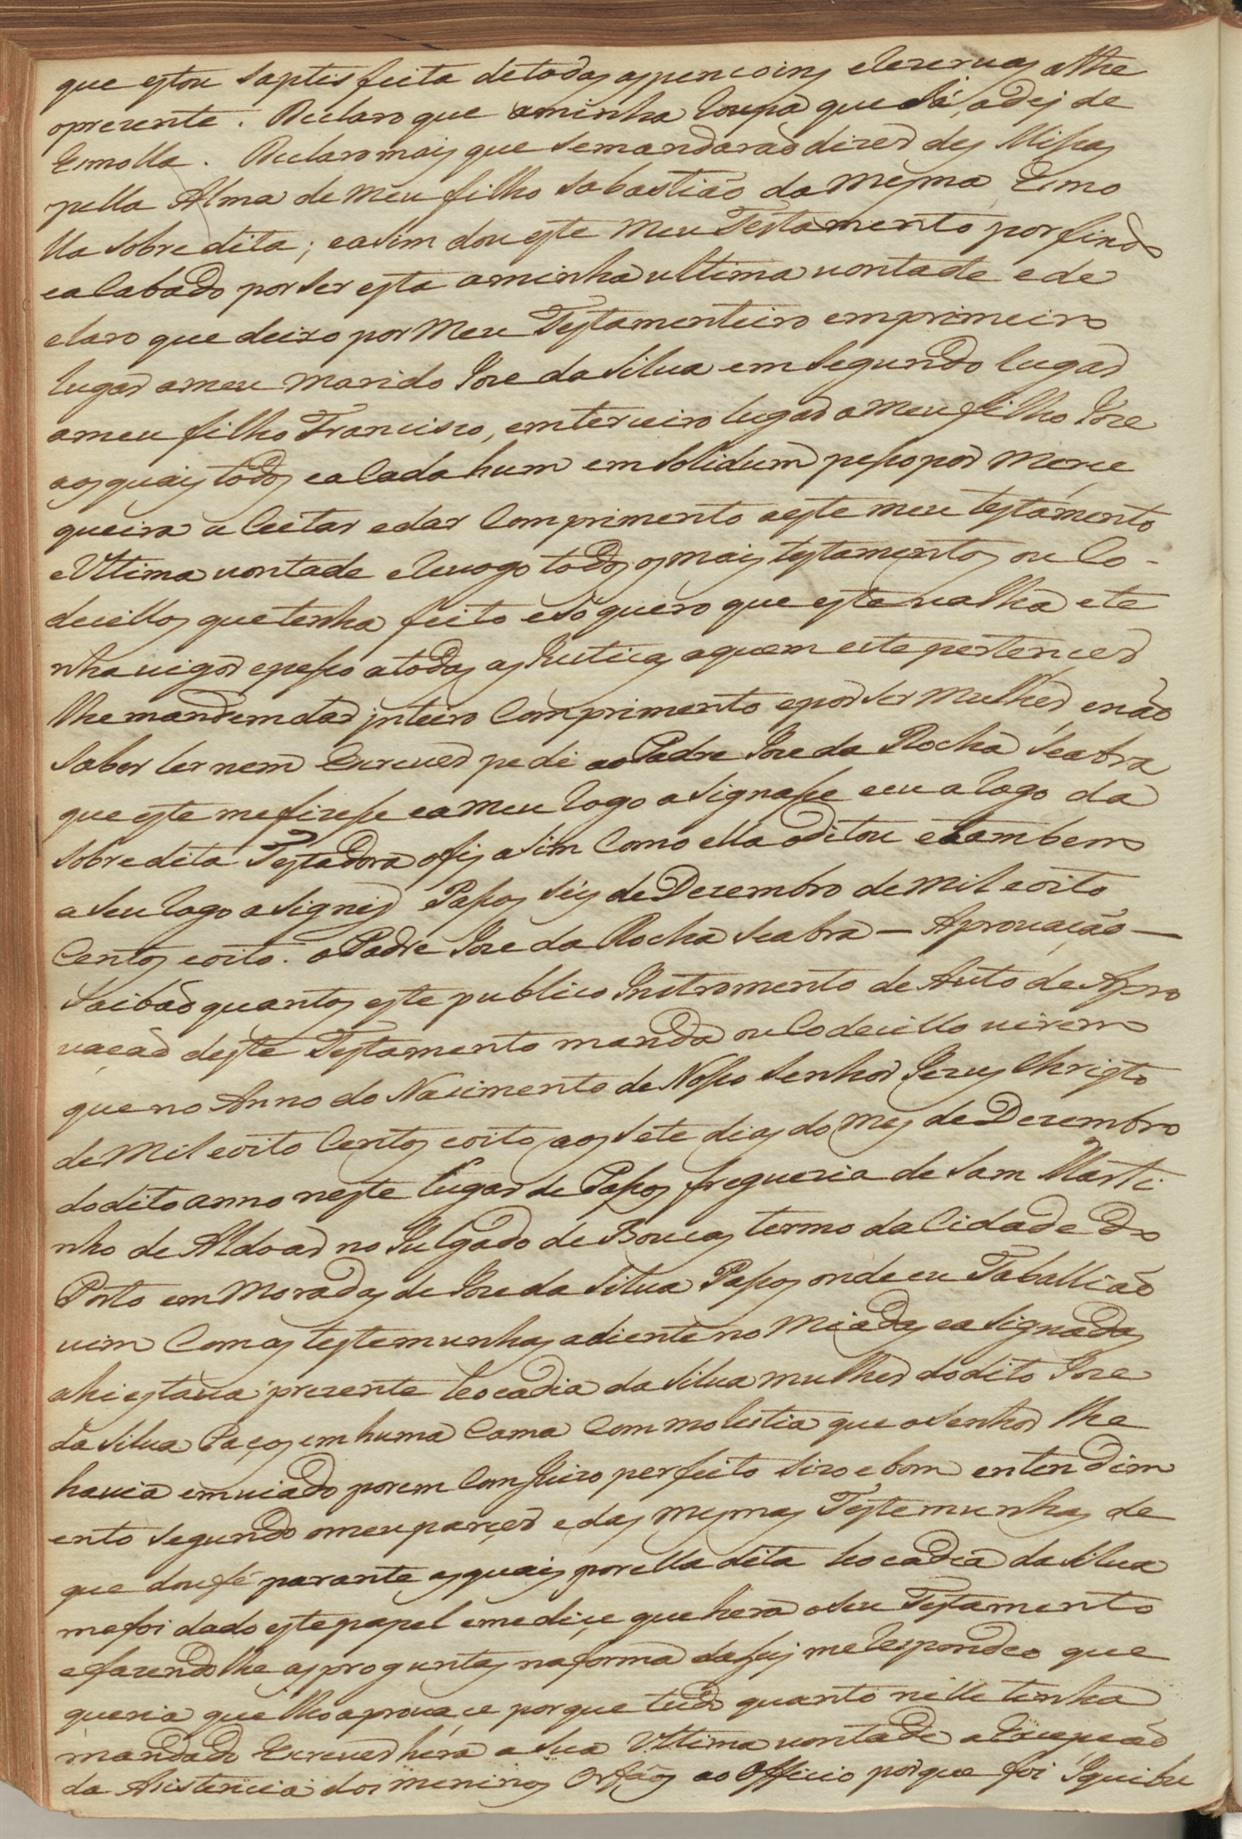 que estou saptisfeita de todas as pencoins e Rezervas athe
o prezente. Declaro que a minha Roupa que Sá, a deis de
Esmolla. Declaro mais que se mandarão dizer des Missas
pella Alma de meu filho Sabastião da mesma Esmo
lla sobredita; e asim dou este meu Testamento por findo
e acabado por ser esta a minha ultima vontade e de
claro que deixo por meu Testamenteiro em primeiro
lugar a meu marido Joze da Silva em segundo lugar
a meu filho Francisco, em terceiro lugar a meu filho Joze
aos quais todos e a Cada hum em solidum pesso por merce
queira aceitar e dar Comprimento a este meu testamento
e Ultima vontade e Revogo todos os mais testamentos ou Co-
decillos que tenha feito e só quero que este valha e te
nha vigor e pesso a todas as Justiças a quem este pertencer
lhe mandem dar inteiro Comprimento e por ser mulher e não
saber ler nem Escrever pedi ao Padre Joze da Rocha Seabra
que este me fizesse e a meu Rogo asignasse e eu a Rogo da
sobredita Testadora o fis asim Como ella o ditou e tambem
a seu Rogo asignei Passos seis de Dezembro de mil e oito
Centos e oito. o Padre Joze da Rocha Seabra — Aprovação —
Saibão quantos este publico Instromento de Auto de Apro
vação deste Testamento manda ou Codecillo virem
que no Anno do Nacimento de Nosso Senhor Jezus Christo
de Mil e oito Centos e oito aos sete dias do mes de Dezembro
do dito anno neste lugar de Passos freguezia de Sam Marti
nho de Aldoar no Julgado de Boucas termo da Cidade do
Porto em moradas de Joze da Silva Passos onde eu Taballião
vim Com as testemunhas adiente no Miadas e asignadas
ahi estava prezente Leocadia da Silva mulher do dito Joze
da Silva Paços em huma Cama Com molestia que o Senhor lhe
havia emviado porem Com Juizo perfeito sizo e bom entendim
ento segundo o meu parçer e das mesmas Testemunhas de
que dou fé parante as quais por ella dita Leocadia da Silva
me foi dado este papel e me diçe que hera o seu Testamento
e fazendo lhe as proguntas na forma da Lei me Respondeo que
queria que lho aprovaçe porque tudo quanto nelle tinha
mandado Escrever hera a sua Ultima vontade a Excepcão
da Asistencia dos meninos Orfãos ao Officio porque foi Iquibu